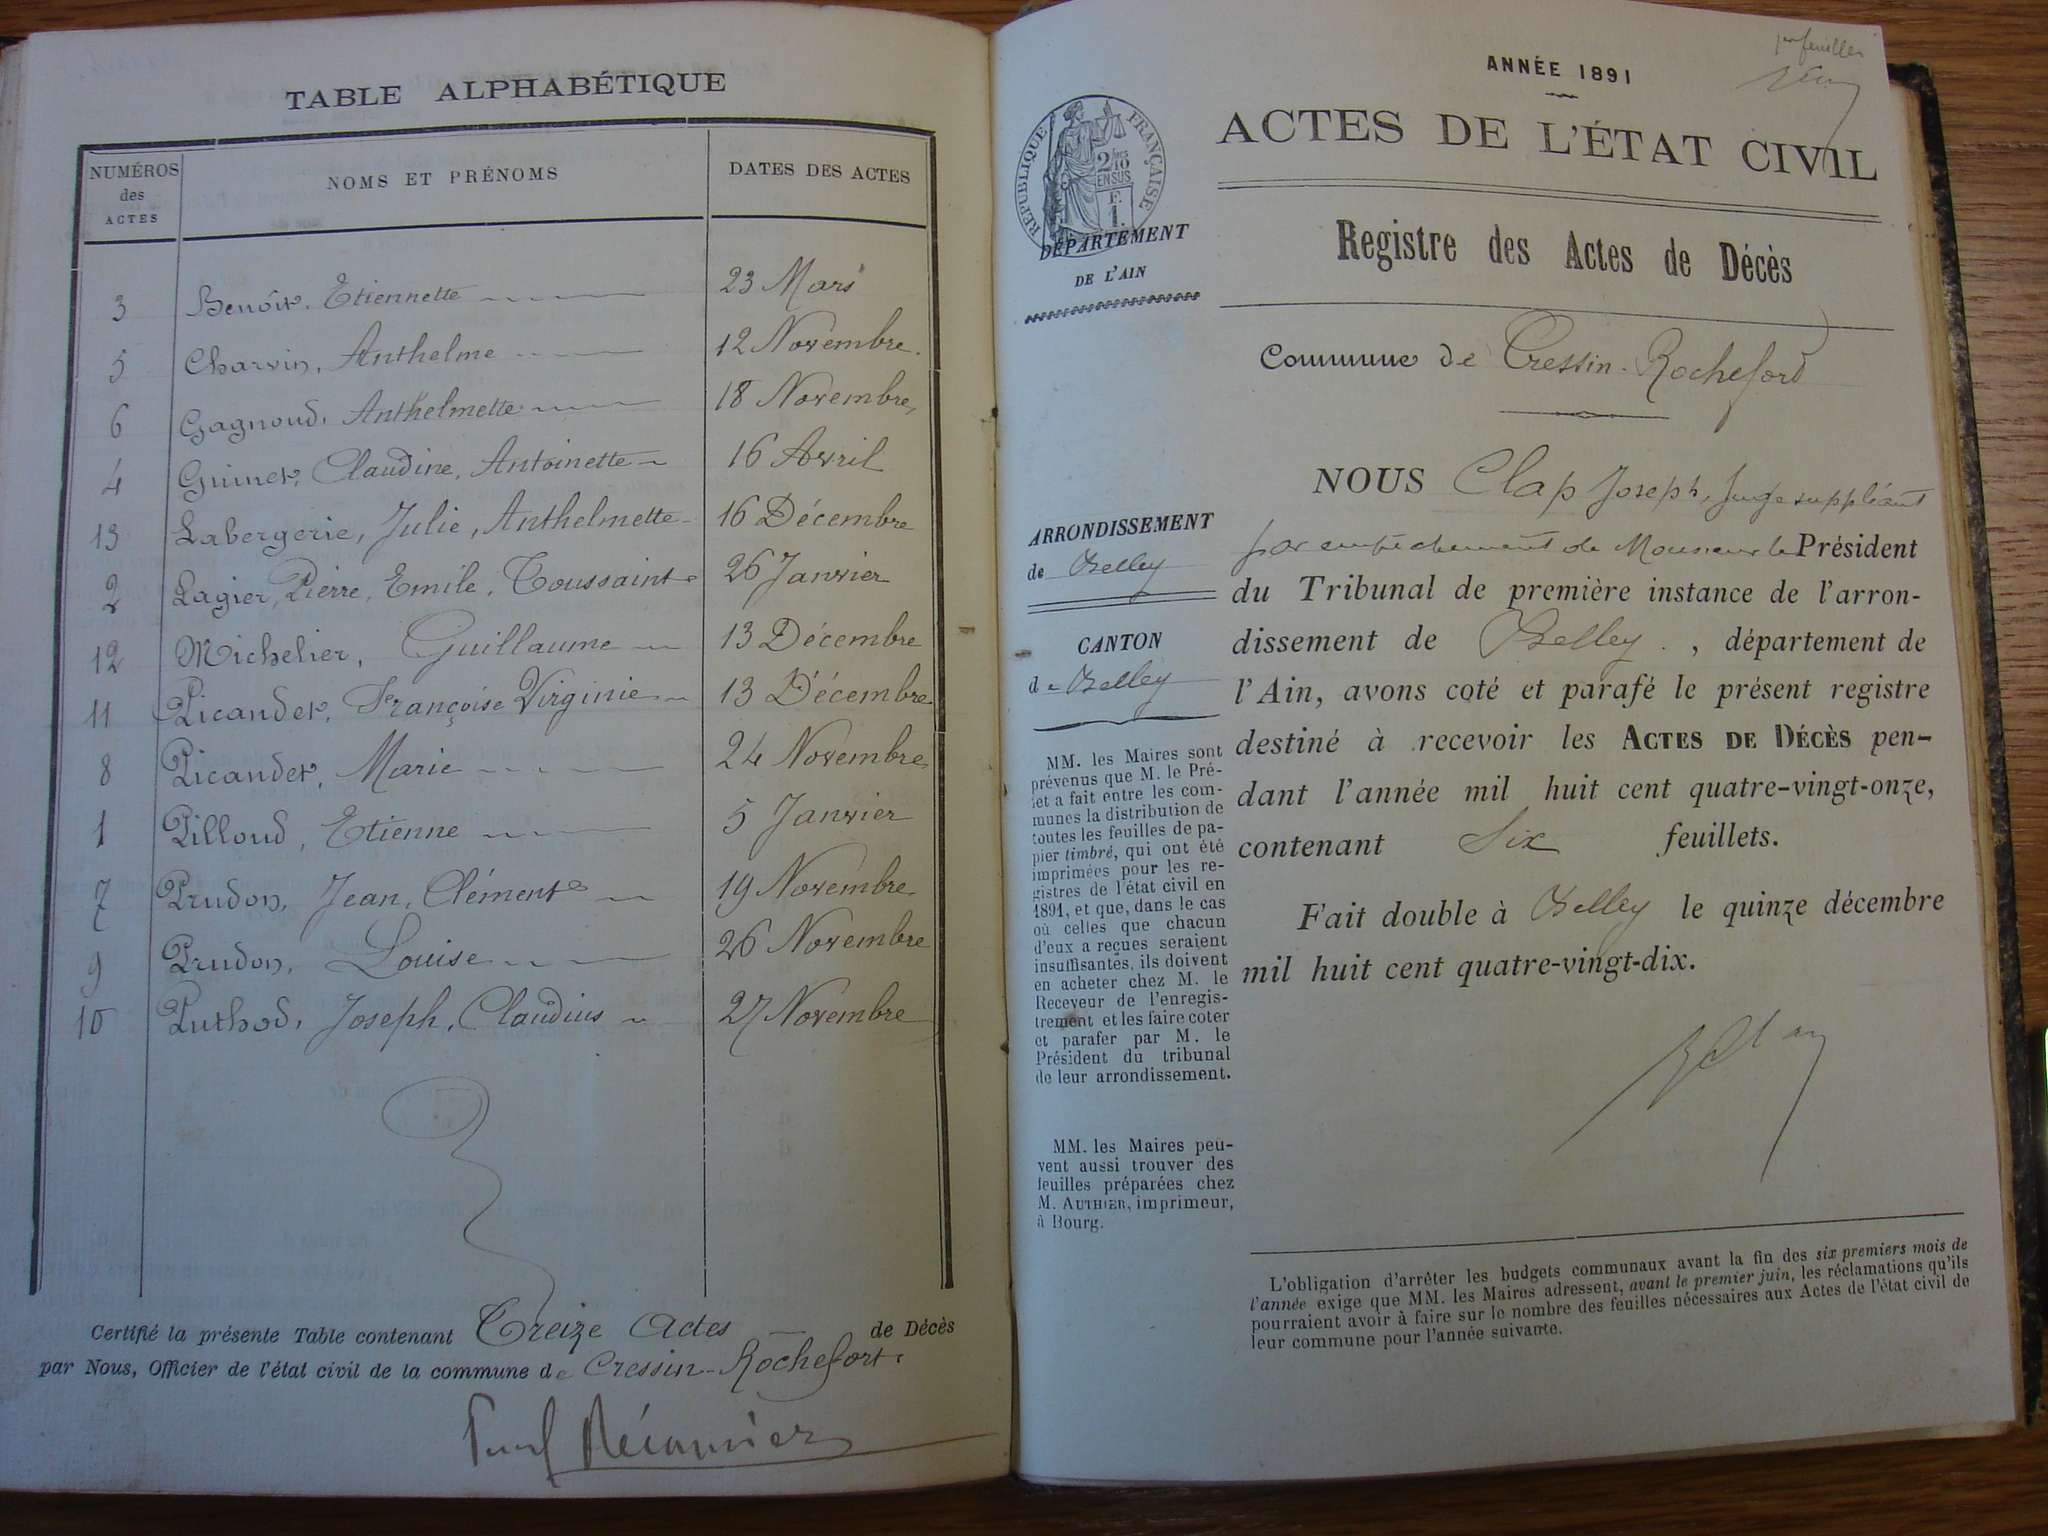 TABLE ALPHABÉTIQUE
NUMÉROS des ACTES NOMS ET PRÉNOMS DATES DES ACTES
3 Benoît, Etiennette 23 Mars
5 Charvin, Anthelme 12 Novembre
6 Gagnoud, Anthelmette 18 Novembre
4 Guinet, Claudine, Antoinette 16 Avril
13 Labergerie, Julie, Anthelmette 16 Décembre
2 Lagier, Pierre, Emile, Toussaint 26 Janvier
12 Michelier, Guillaume 13 Décembre
11 Picandet, Françoise Virginie 13 Décembre
8 Picandet, Marie 24 Novembre
1 Pilloud, Etienne 5 Janvier
7 Prudon, Jean, Clément 19 Novembre
9 Prudon, Louise 26 Novembre
10 Puthod, Joseph, Claudius 27 Novembre
Certifié la présente Table contenant Treize Actes de Décès
par Nous, Officier de l'état civil de la commune de Cressin-Rochefort.
Récamier
1er feuillet
ANNÉE 1891
ACTES DE L'ÉTAT CIVIL
RÉPUBLIQUE FRANÇAISE
2 10es
EN SUS
F.
1.
DÉPARTEMENT
DE L'AIN
Registre des Actes de Décès
Commune de Cressin-Rocheford
ARRONDISSEMENT
de Belley
CANTON
de Belley
MM. les Maires sont
prévenus que M. le Pré-
fet a fait entre les com-
munes la distribution de
toutes les feuilles de pa-
pier timbré, qui ont été
imprimées pour les re-
gistres de l'état civil en
1891, et que, dans le cas
où celles que chacun
d'eux a reçues seraient
insuffisantes, ils doivent
en acheter chez M. le
Receveur de l'enregis-
trement et les faire coter
et parafer par M. le
Président du tribunal
de leur arrondissement.
MM. les Maires peu-
vent aussi trouver des
feuilles préparées chez
M. AUTHIER, imprimeur,
à Bourg.
NOUS Clap Joseph, Juge suppléant
par empêchement de Monsieur le Président
du Tribunal de première instance de l'arron-
dissement de Belley, département de
l'Ain, avons coté et parafé le présent registre
destiné à recevoir les ACTES DE DÉCÈS pen-
dant l'année mil huit cent quatre-vingt-onze,
contenant Six feuillets.
Fait double à Belley le quinze décembre
mil huit cent quatre-vingt-dix.
L'obligation d'arrêter les budgets communaux avant la fin des six premiers mois de
l'année exige que MM. les Maires adressent, avant le premier juin, les réclamations qu'ils
pourraient avoir à faire sur le nombre des feuilles nécessaires aux Actes de l'état civil de
leur commune pour l'année suivante.